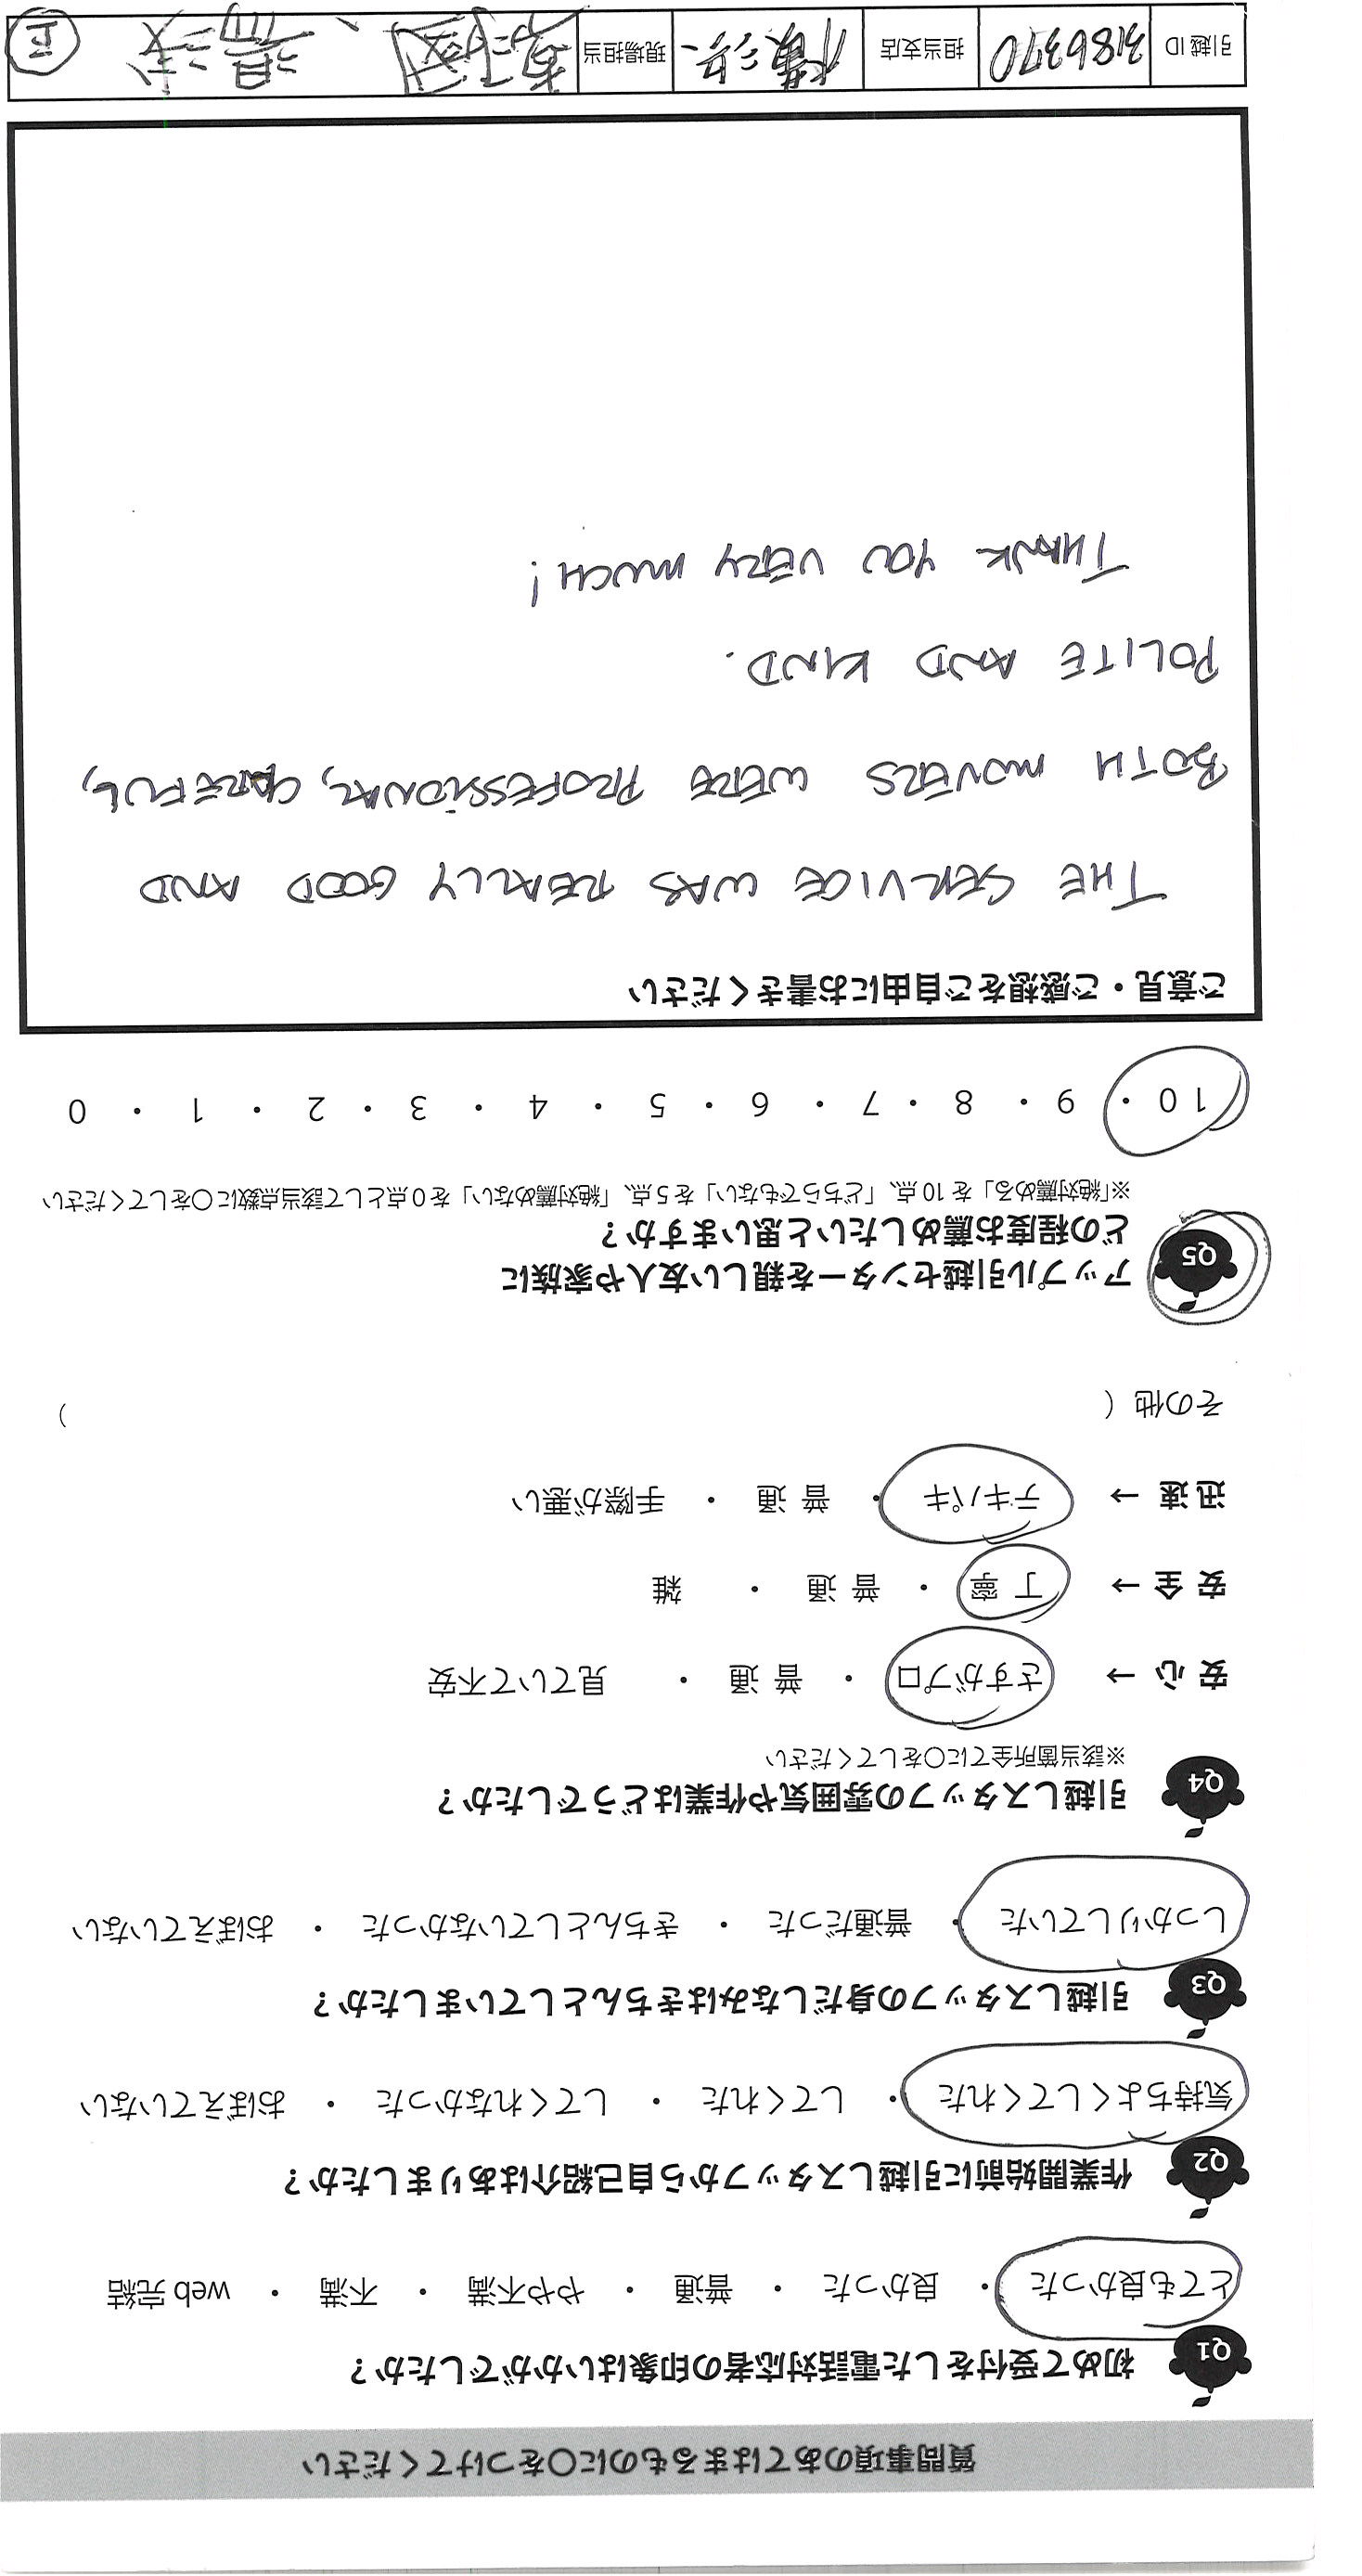 質問事項のあてはまるものに○をつけてください
Q1 初めて受付をした電話対応者の印象はいかがでしたか？
とても良かった ・ 良かった ・ 普通 ・ やや不満 ・ 不満 ・ web 完結
Q2 作業開始前に引越しスタッフから自己紹介はありましたか？
気持ちよくしてくれた ・ してくれた ・ してくれなかった ・ おぼえていない
Q3 引越しスタッフの身だしなみはきちんとしていましたか？
しっかりしていた ・ 普通だった ・ きちんとしていなかった ・ おぼえていない
Q4 引越しスタッフの雰囲気や作業はどうでしたか？
※該当箇所全てに○をしてください
安 心 → さすがプロ ・ 普 通 ・ 見ていて不安
安 全 → 丁 寧 ・ 普 通 ・ 雑
迅 速 → テキパキ ・ 普 通 ・ 手際が悪い
その他 ( )
Q5 アップル引越センターを親しい友人や家族に
どの程度お薦めしたいと思いますか？
※「絶対薦める」を 10 点、「どちらでもない」を 5 点、「絶対薦めない」を 0 点として該当点数に○をしてください
10 ・ 9 ・ 8 ・ 7 ・ 6 ・ 5 ・ 4 ・ 3 ・ 2 ・ 1 ・ 0
ご意見・ご感想をご自由にお書きください
THE SERVICE WAS REALLY GOOD AND
BOTH MOVERS WERE PROFESSIONAL, CAREFUL,
POLITE AND KIND.
THANK YOU VERY MUCH!
引越 ID 3186370 担当支店 現場担当